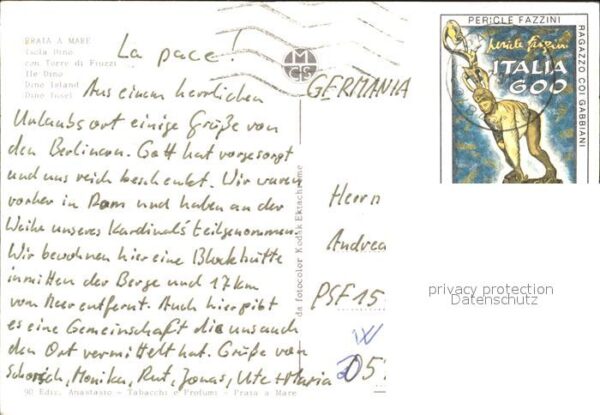 PRAIA A MARE
Isola Dino
con Torre di Fiuzzi
Ile Dino
Dino Island
Dino Insel
La pace!
Aus einem herrlichen
Urlaubsort einige Grüße von
den Berlinern. Gott hat vorgesorgt
und uns reich beschenkt. Wir waren
vorher in Rom und haben an der
Weihe unseres Kardinals teilgenommen.
Wir bewohnen hier eine Blockhütte
inmitten der Berge und 17 km
vom Meer entfernt. Auch hier gibt
es eine Gemeinschaft die uns auch
den Ort vermittelt hat. Grüße von
Schorsch, Monika, Rut, Jonas, Ute + Maria
90 Ediz. Anastasio - Tabacchi e Profumi - Praia a Mare
da fotocolor Kodak Ektachrome
GERMANIA
Herrn
Andrea
PSF 15
05
PERICLE FAZZINI
RAGAZZO COI GABBIANI
ITALIA
600
privacy protection
Datenschutz